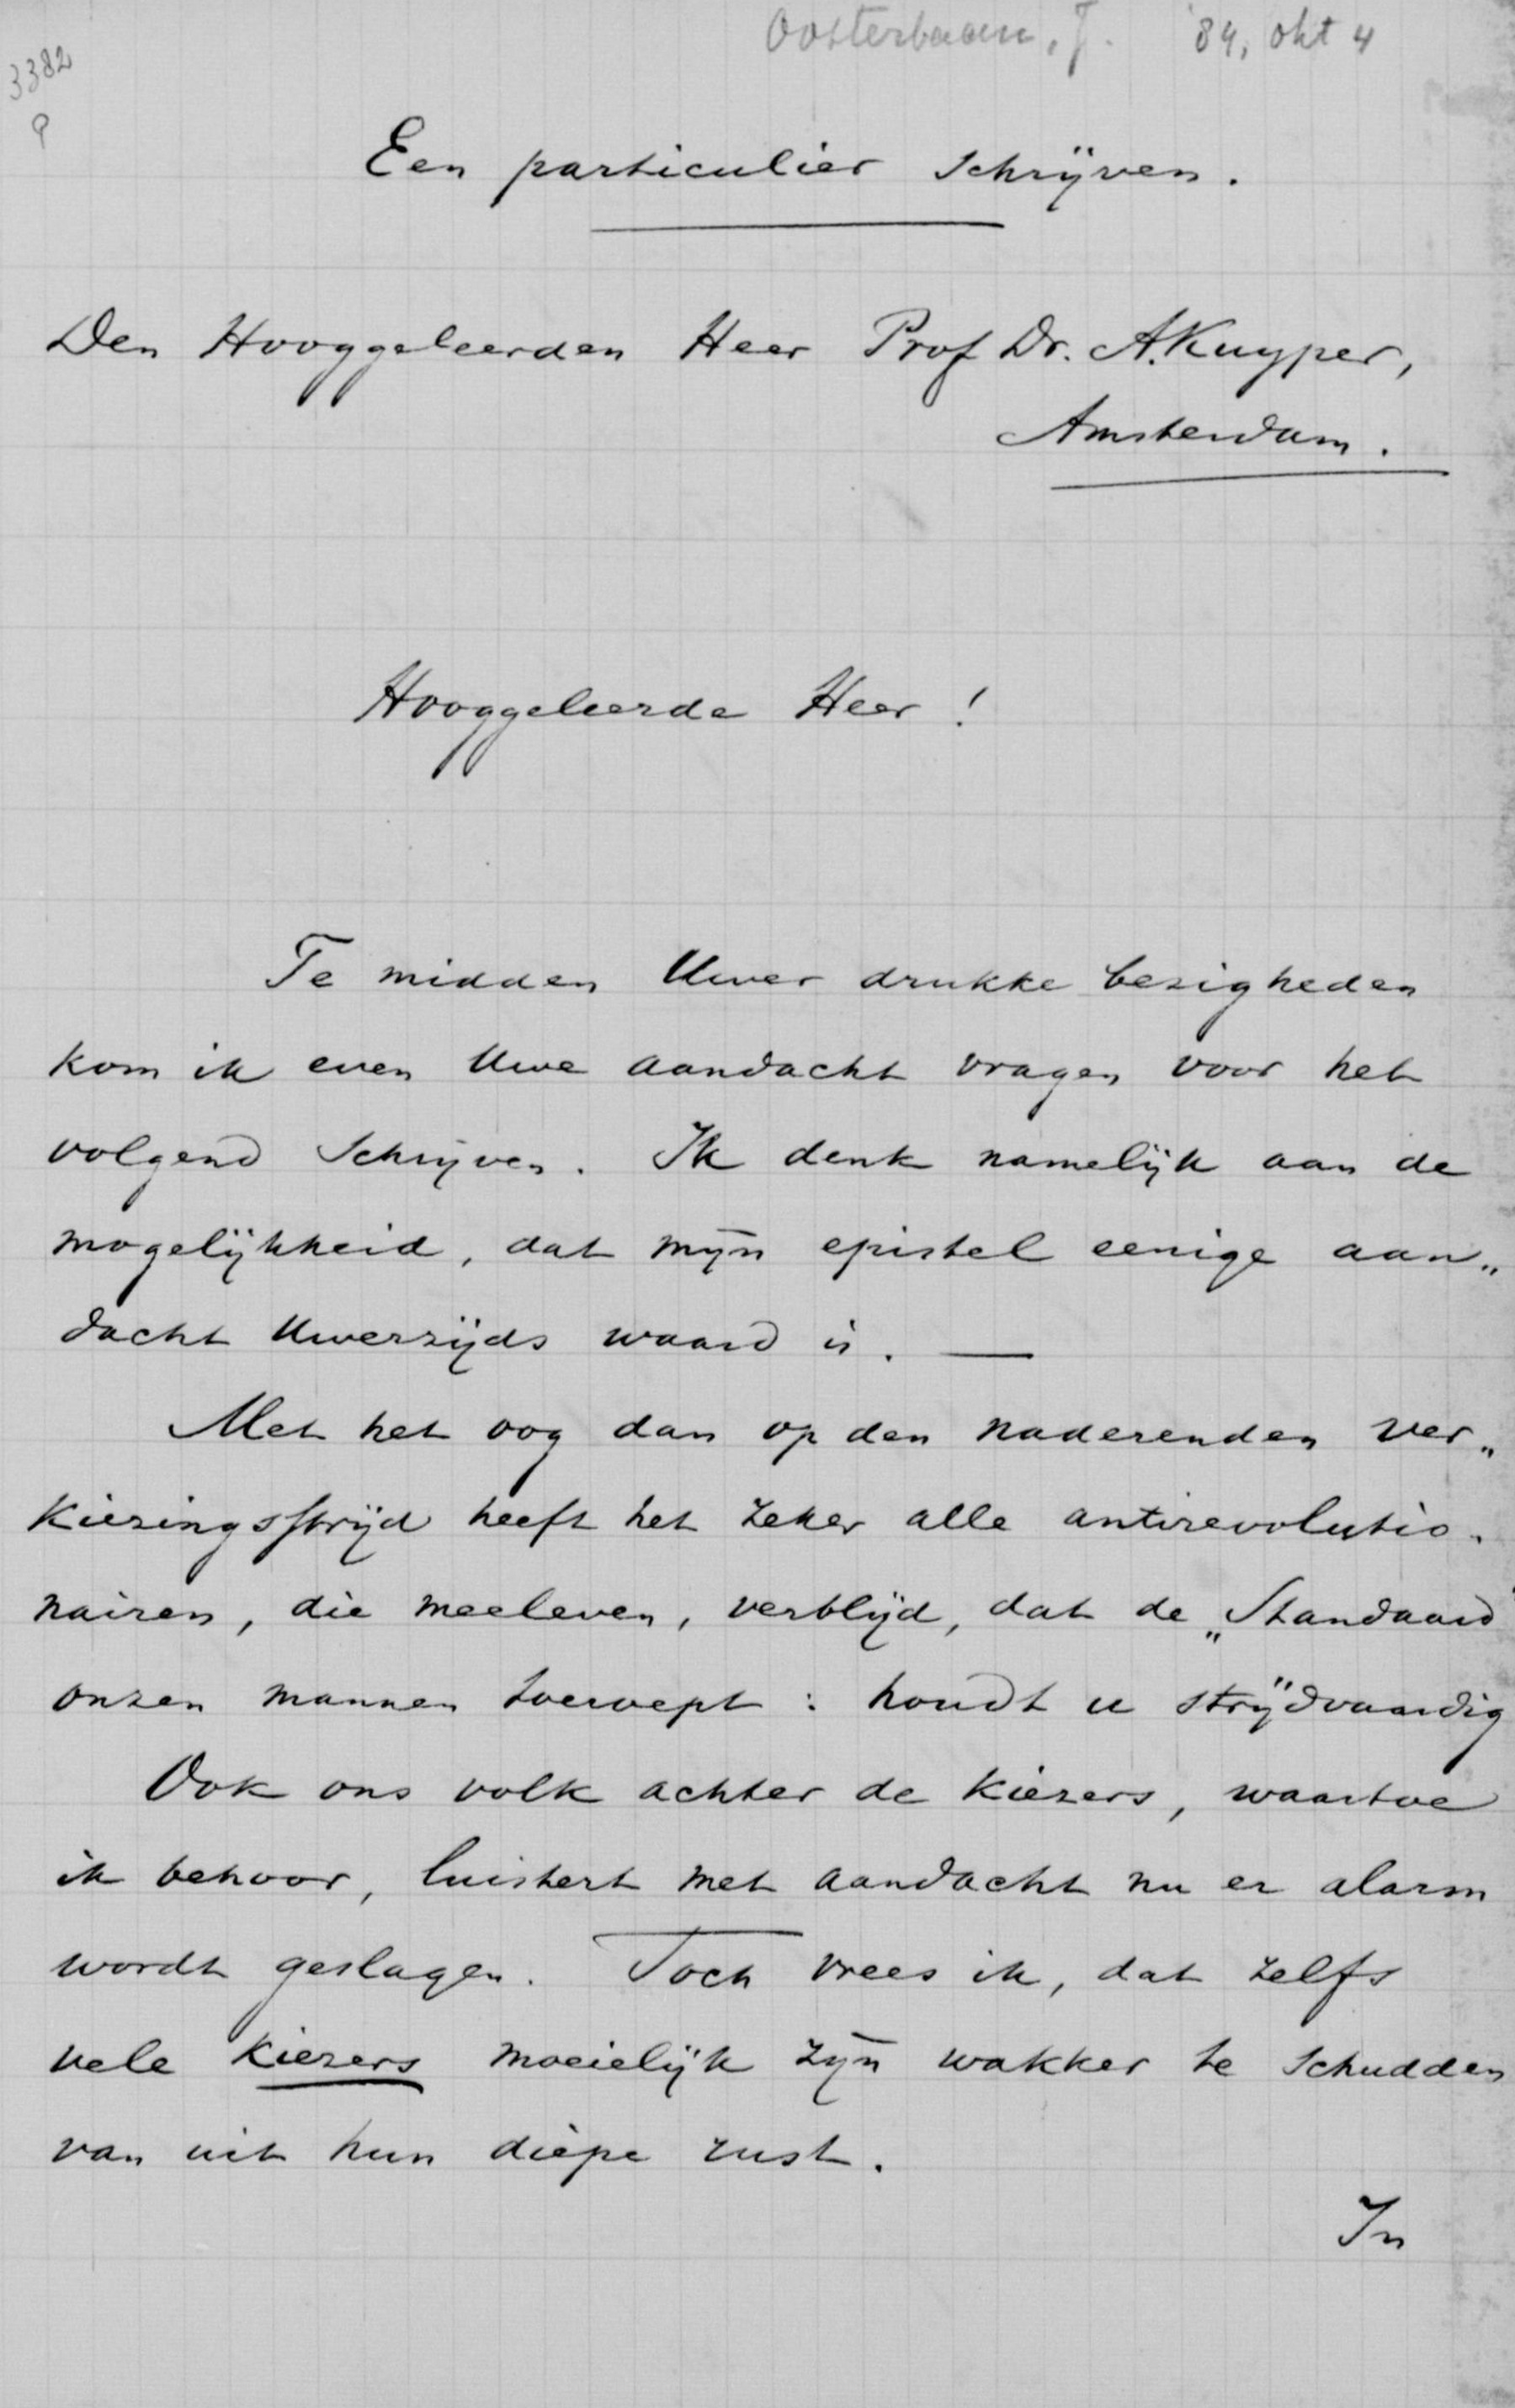 Oosterbaan, J. '84, okt 4
3382
Een particulier schrijven.
Den Hooggeleerden Heer Prof Dr. A. Kuyper,
Amsterdam.
Hooggeleerde Heer!
Te midden Uwer drukke bezigheden
kom ik even Uwe aandacht vragen voor het
volgend schrijven. Ik denk namelijk aan de
mogelijkheid, dat mijn epistel eenige aan„
dacht Uwerzijds waard is. —
Met het oog dan op den naderenden ver„
kiezingsstrijd heeft het zeker alle antirevolutio-
nairen, die meeleven, verblijd, dat de „Standaard"
onzen mannen toeroept: houdt u strijdvaardig
Ook ons volk achter de kiezers, waartoe
ik behoor, luistert met aandacht nu er alarm
wordt geslagen. Toch vrees ik, dat zelfs
vele kiezers moeielijk zijn wakker te schudden
van uit hun diepe rust.
In